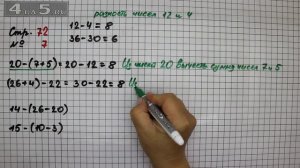 4ALL.RU
разность чисел 12 и 4
Стр. 72 12-4=8
№ 7 36-30=6
20-(7+5)=20-12=8 Из числа 20 вычесть сумму чисел 7 и 5
(26+4)-22=30-22=8 Из
14-(26-20)
15-(10-3)